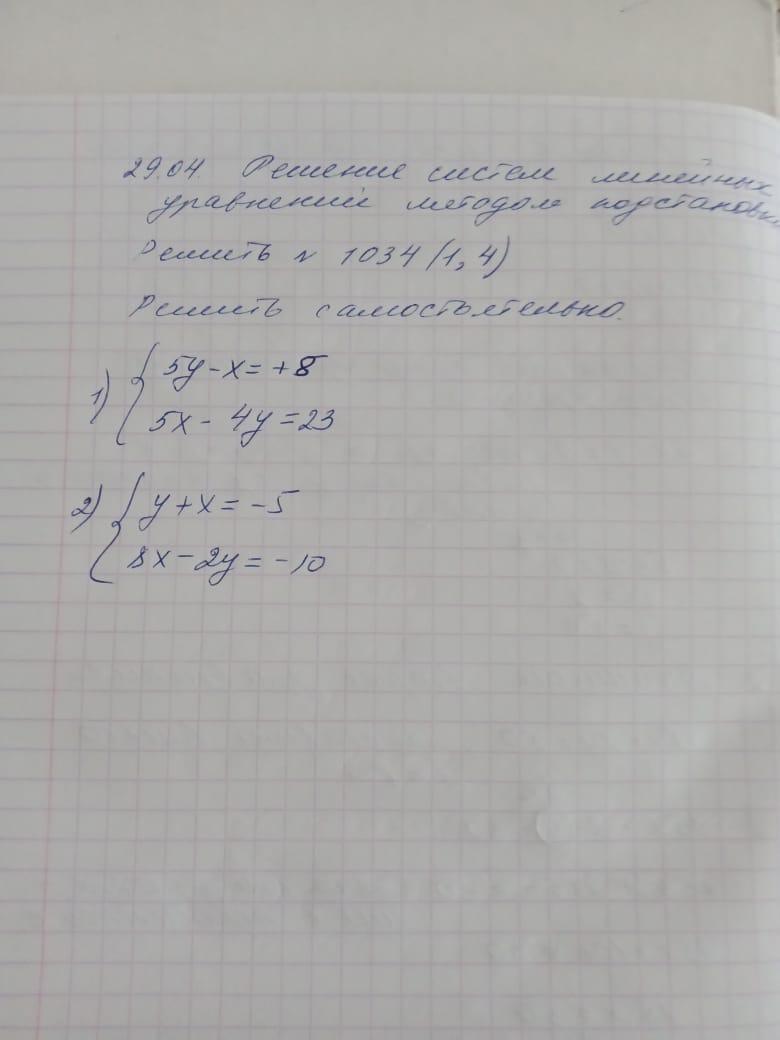 29.04. Решение систем линейных
уравнений методом подстановки
Решить № 1034 (1, 4)
Решить самостоятельно.
1) { 5y - x = +8
5x - 4y = 23
2) { y + x = -5
8x - 2y = -10